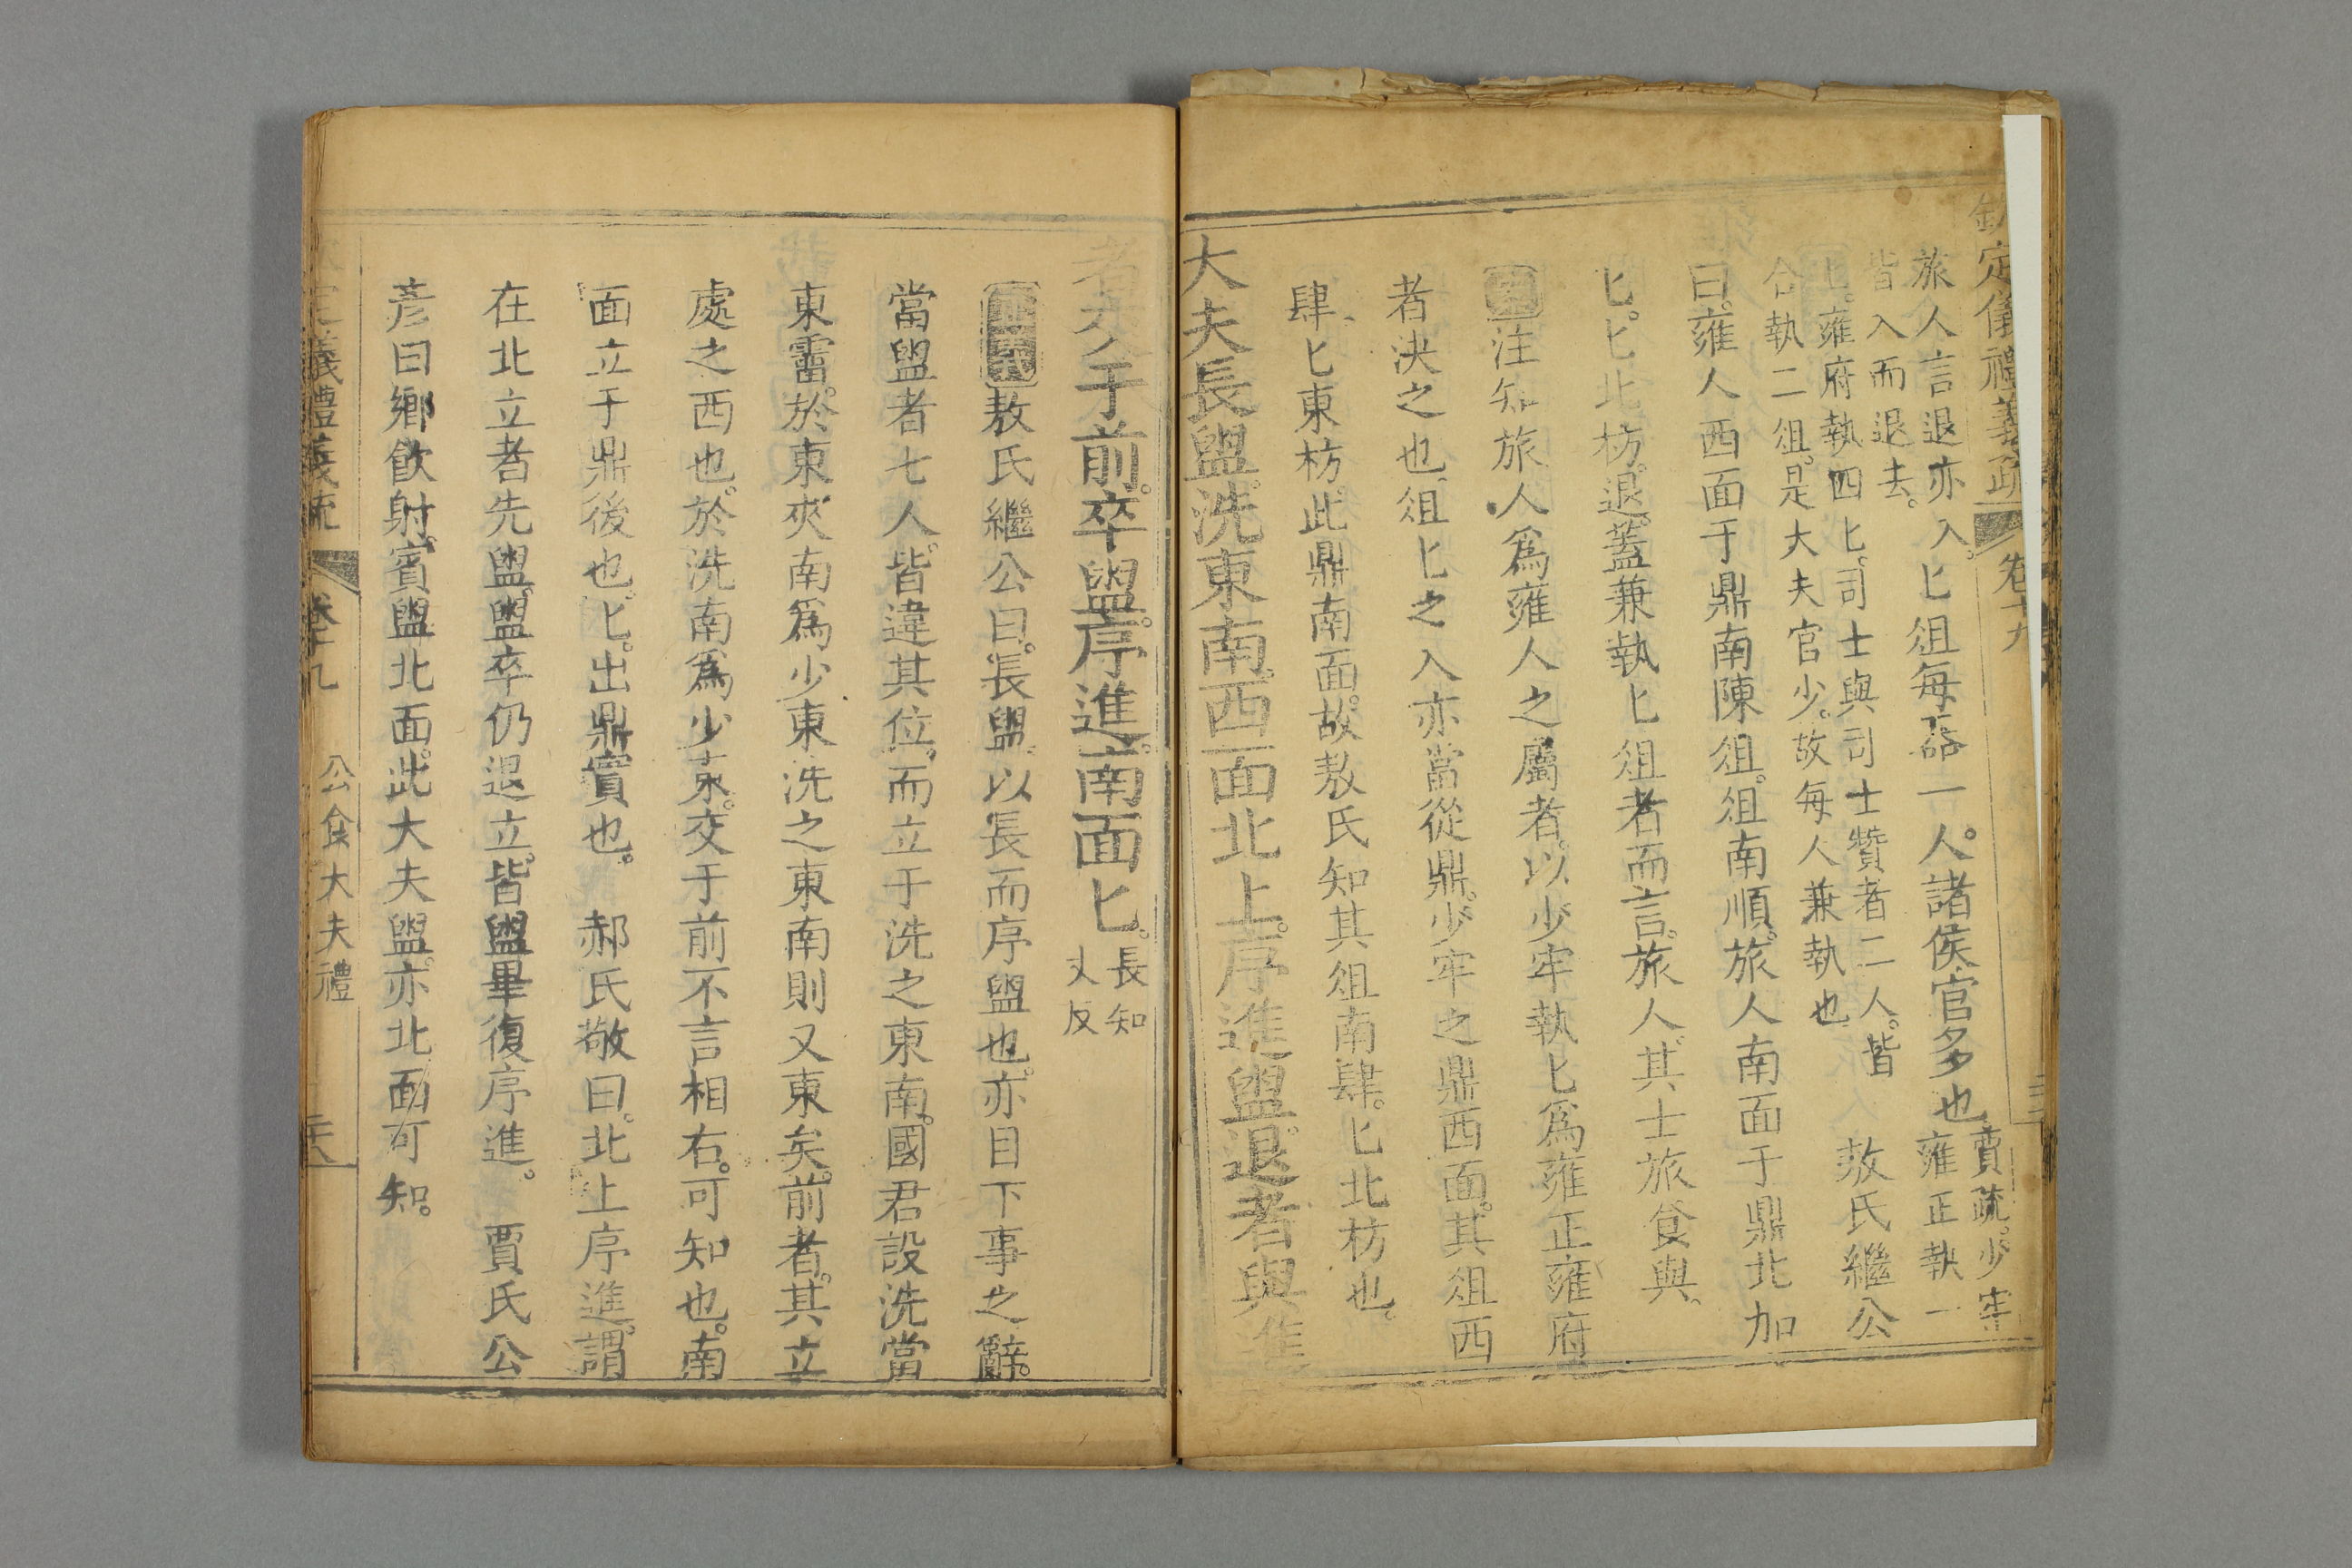 欽定儀禮義疏 卷十九
旅人言退亦入。匕俎每器一人。諸侯官多也 賈疏。少牢 雍正執一
匕。雍府執四匕。司士與司士贊者二人。皆
合執二俎。是大夫官少。故每人兼執也
皆入而退去。 敖氏繼公
曰。雍人西面于鼎南陳俎。俎南順。旅人南面于鼎北加
匕。匕北枋。退。蓋兼執匕俎者而言。旅人。其士旅食與。
案注知旅人爲雍人之屬者。以少牢執匕爲雍正雍府
者決之也。俎匕之入亦當從鼎。少牢之鼎西面。其俎西
肆。匕東枋。此鼎南面。故敖氏知其俎南肆。匕北枋也。
大夫長盥。洗東南。西面北上。序進盥。退者與進
者交于前。卒盥。序進。南面匕。長知丈反
正義敖氏繼公曰。長盥。以長而序盥也。亦目下事之辭。
當盥者七人。皆違其位。而立于洗之東南。國君設洗當
東霤。於東夾南爲少東。洗之東南則又東矣。前者。其立
處之西也。於洗南爲少東。交于前不言相右。可知也。南
面立于鼎後也。匕。出鼎實也。 郝氏敬曰。北上序進。謂
在北立者先盥。盥卒仍退立。皆盥畢。復序進。 賈氏公
彥曰。鄉飲射。賓盥北面。此大夫盥。亦北面可知。
欽定儀禮義疏 卷十九 公食大夫禮